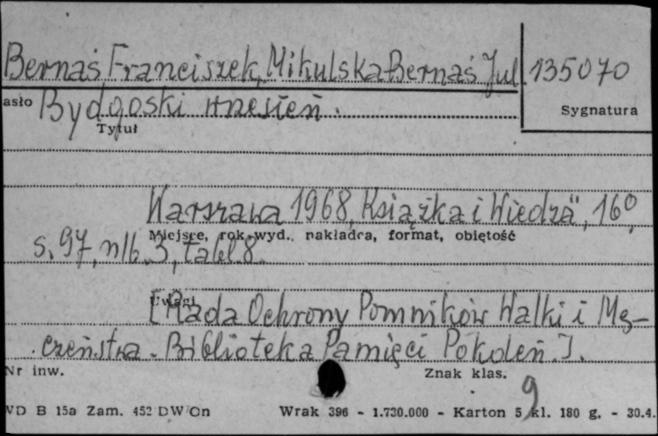 Bernaś Franciszek, Mikulska-Bernaś Jul. 135070
asło Bydgoski wrzesień. Sygnatura
Tytuł
Warszawa 1968, „Książka i Wiedza", 16°,
Miejsce, rok wyd., nakładca, format, objętość
s. 97, nlb. 3, tabl. 8.
Uwagi
[Rada Ochrony Pomników Walki i Mę-
czeństwa. Biblioteka Pamięci Pokoleń.].
Nr inw. Znak klas.
9
VD B 15a Zam. 452 DW On Wrak 396 - 1.730.000 - Karton 5 kl. 180 g. - 30.4.